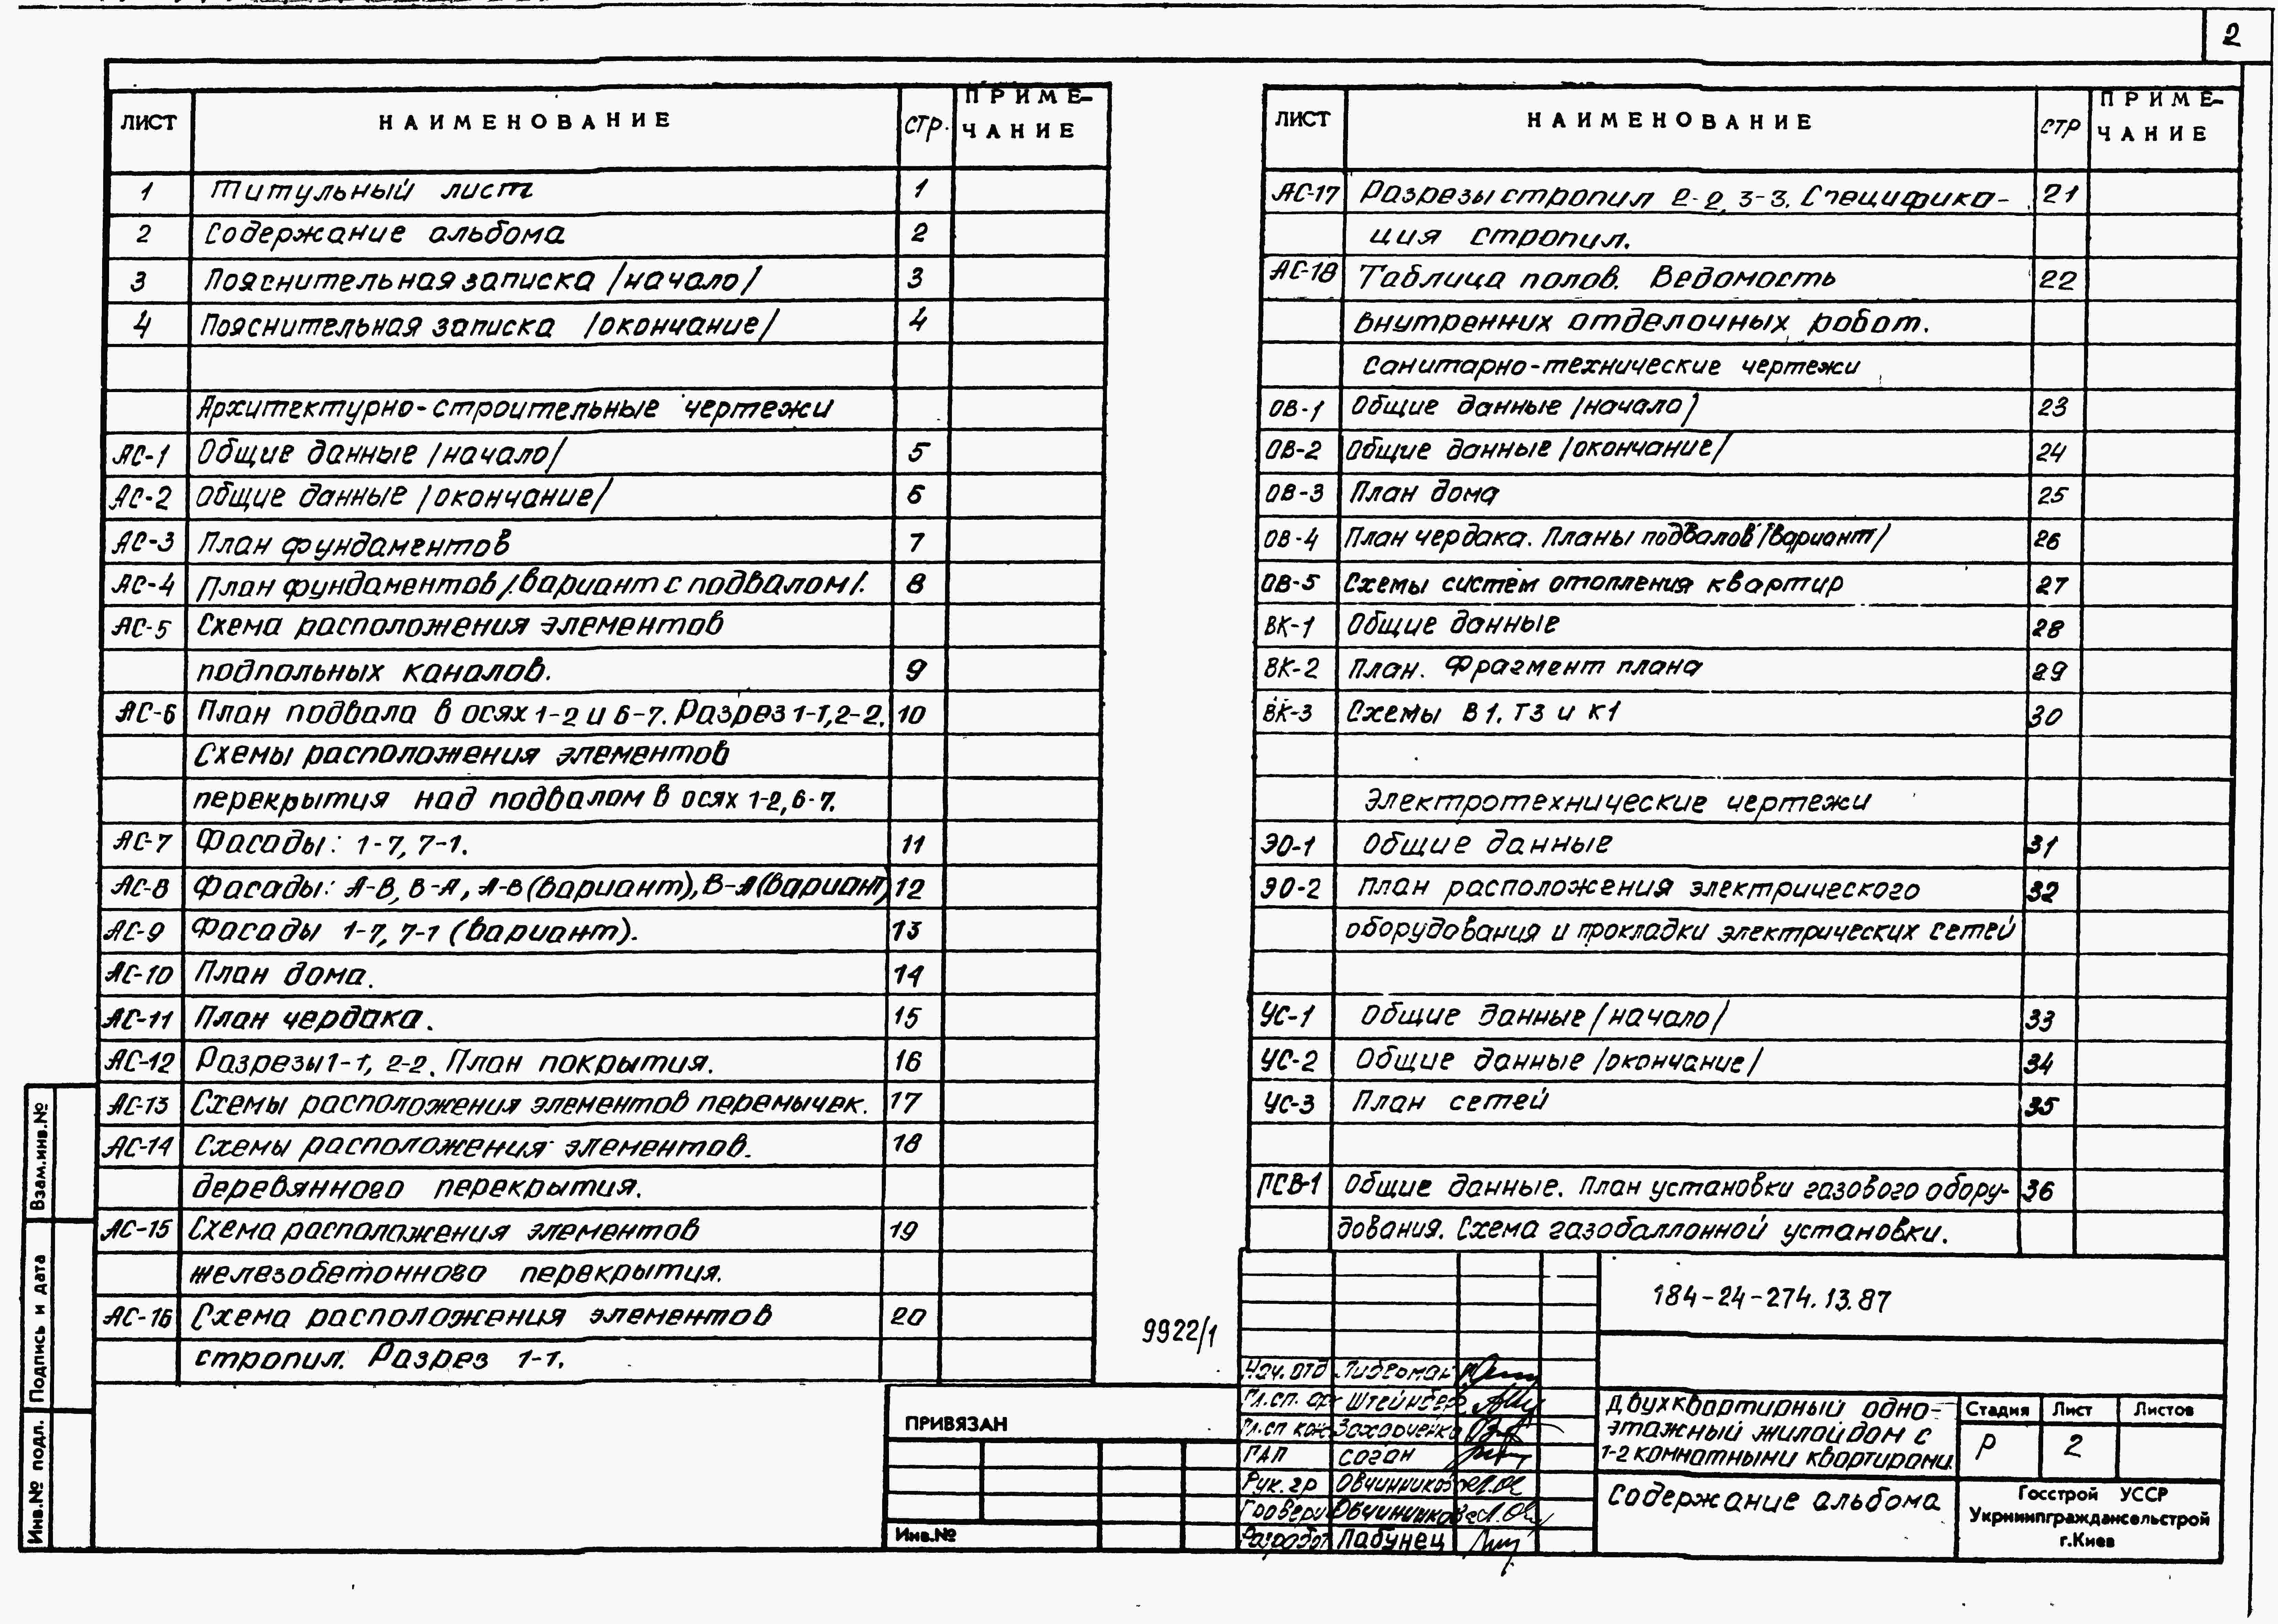 2
ЛИСТ НАИМЕНОВАНИЕ СТР. ПРИМЕ-
ЧАНИЕ
1 Титульный лист 1
2 Содержание альбома 2
3 Пояснительная записка /начало/ 3
4 Пояснительная записка /окончание/ 4
Архитектурно-строительные чертежи
АС-1 Общие данные /начало/ 5
АС-2 Общие данные /окончание/ 6
АС-3 План фундаментов 7
АС-4 План фундаментов /вариант с подвалом/. 8
АС-5 Схема расположения элементов
подпольных каналов. 9
АС-6 План подвала в осях 1-2 и 6-7. Разрез 1-1, 2-2. 10
Схемы расположения элементов
перекрытия над подвалом в осях 1-2, 6-7.
АС-7 Фасады: 1-7, 7-1. 11
АС-8 Фасады: А-В, В-А, А-В (вариант), В-А (вариант) 12
АС-9 Фасады 1-7, 7-1 (вариант). 13
АС-10 План дома. 14
АС-11 План чердака. 15
АС-12 Разрезы 1-1, 2-2. План покрытия. 16
АС-13 Схемы расположения элементов перемычек. 17
АС-14 Схемы расположения элементов. 18
деревянного перекрытия.
АС-15 Схема расположения элементов 19
железобетонного перекрытия.
АС-16 Схема расположения элементов 20
стропил. Разрез 1-1.
ЛИСТ НАИМЕНОВАНИЕ СТР ПРИМЕ-
ЧАНИЕ
АС-17 Разрезы стропил 2-2, 3-3. Специфика- 21
ция стропил.
АС-18 Таблица полов. Ведомость 22
внутренних отделочных работ.
Санитарно-технические чертежи
ОВ-1 Общие данные /начало/ 23
ОВ-2 Общие данные /окончание/ 24
ОВ-3 План дома 25
ОВ-4 План чердака. Планы подвалов /вариант/ 26
ОВ-5 Схемы систем отопления квартир 27
ВК-1 Общие данные 28
ВК-2 План. Фрагмент плана 29
ВК-3 Схемы В1, Т3 и К1 30
Электротехнические чертежи
ЭО-1 Общие данные 31
ЭО-2 План расположения электрического 32
оборудования и прокладки электрических сетей
УС-1 Общие данные /начало/ 33
УС-2 Общие данные /окончание/ 34
УС-3 План сетей 35
ГСВ-1 Общие данные. План установки газового обору- 36
дования. Схема газобаллонной установки.
9922/1
184-24-274.13.87
Нач. отд Либерман
Гл. сп. арх Штейнберг
Гл. сп кон Захарченко
ГАП Соган
Рук. гр Овчинников
Провери Овчинников
Разработ Лабунец
Двухквартирный одно-
этажный жилой дом с
1-2 комнатными квартирами.
Стадия Лист Листов
Р 2
Содержание альбома
Госстрой УССР
Укрниипграждансельстрой
г.Киев
ПРИВЯЗАН
Инв.№
Взам.инв.№
Подпись и дата
Инв.№ подл.